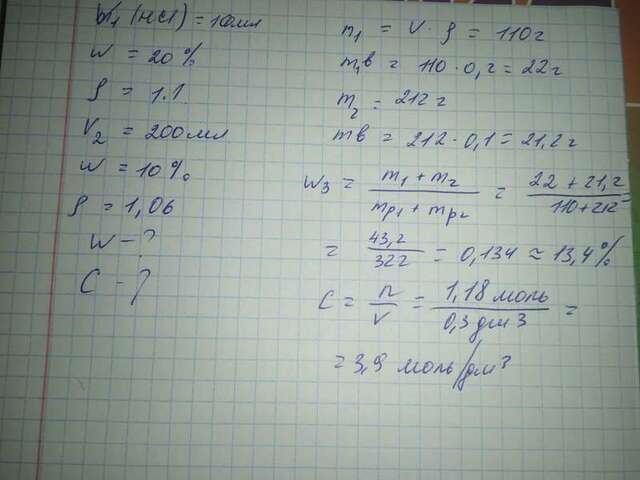 V₁ (HCl) = 100мл
w = 20%
ρ = 1.1.
V₂ = 200мл
w = 10%.
ρ = 1,06
w - ?
C - ?
m₁ = V · ρ = 110г
m₁в = 110 · 0,2 = 22г
m₂ = 212г
mв = 212 · 0,1 = 21,2г
w₃ = m₁ + m₂ / mp₁ + mp₂ = 22 + 21,2 / 110 + 212 =
= 43,2 / 322 = 0,134 ≈ 13,4%
C = n / V = 1,18 моль / 0,3 дм3 =
= 3,9 моль/дм³